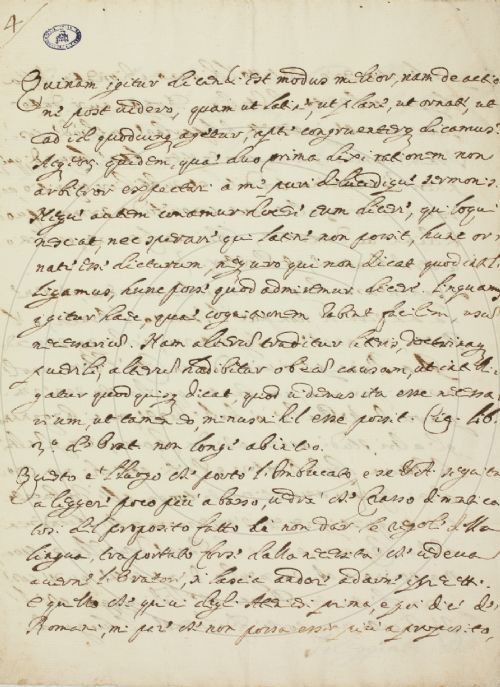 4
Quinam igitur dicendi est modus melior, nam de actio
ne post videro, quam ut latine, ut plane, ut ornate, ut
ad id quodcunq agetur, apte congruenterq dicamus
Atque eorum quidem, quae duo prima dixi rationem non
arbitror expectari a me puri dilucidique sermonis
Neque enim conamur docere eum dicere, qui loqui
nesciat, nec sperare qui latine non possit, hunc or
nate esse dicturum, neq vero qui non dicat quod intel
ligamus, hunc posse quod admiremur dicere. Linquamus
igitur haec, quae cognitionem habent facilem, usum
necessarium. Nam alterum traditur literis, doctrinaq
puerili, alterum adhibetur ob eam causam, ut intelli
gatur quod quisq dicat, quod videmus ita esse necessa
rium, ut tamen eo minus nihil esse possit. Cic. lib.
3.º de Orat. non longe ab initio.
Questo è il luogo che portò l'Imbucato e se V.A. seguita
a leggere poco più a basso, vedrà che Crasso dimentica
tosi del proposito fatto di non dar le regole della
lingua, trasportato forse dalla necessità che vedeva
averne l'Oratore, si lascia andare a darne
E quello che quivi degl' Ateniesi prima, e poi dice de
Romani, mi pare che non possa esser più a proposito,